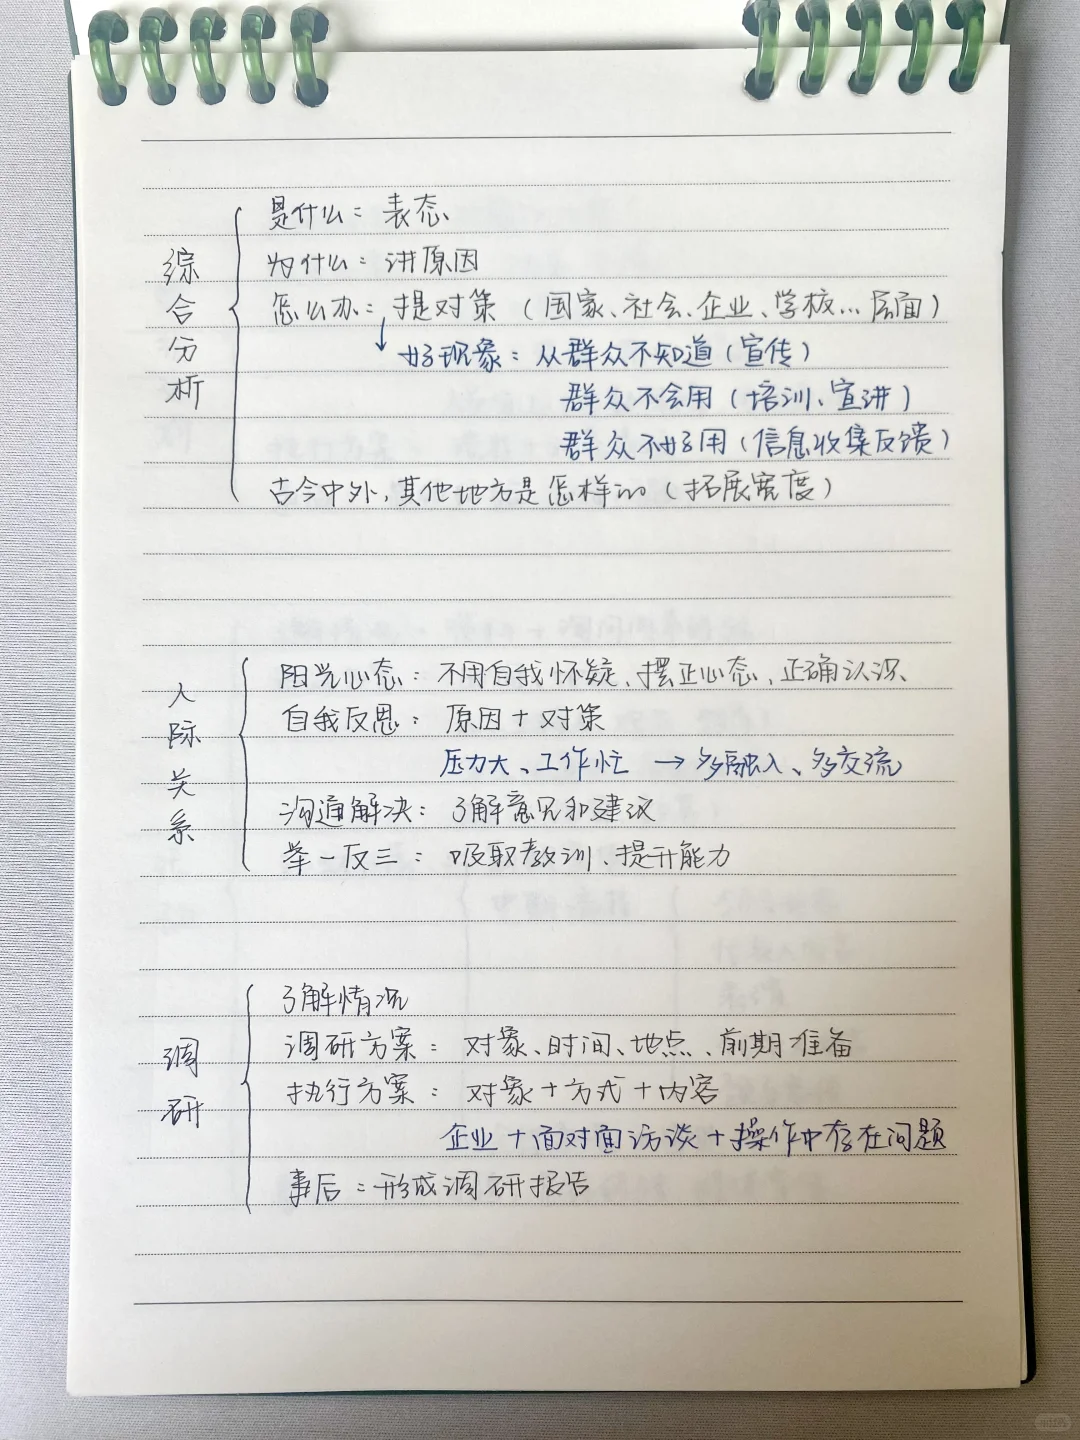 综合分析
是什么：表态
为什么：讲原因
怎么办：提对策（国家、社会、企业、学校...层面）
↓好现象：从群众不知道（宣传）
群众不会用（培训、宣讲）
群众不好用（信息收集反馈）
古今中外，其他地方是怎样的（拓展宽度）
人际关系
阳光心态：不用自我怀疑、摆正心态、正确认识、
自我反思：原因+对策
压力大、工作忙 → 多融入、多交流
沟通解决：了解意见和建议
举一反三：吸取教训、提升能力
调研
了解情况
调研方案：对象、时间、地点、前期准备
执行方案：对象+方式+内容
企业+面对面访谈+操作中存在问题
事后：形成调研报告